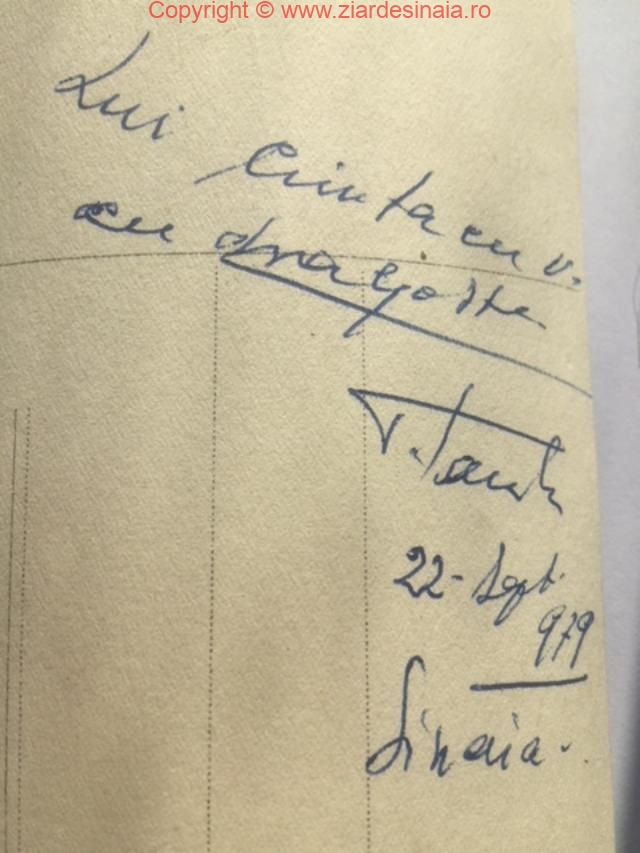 Copyright © www.ziardesinaia.ro
Lui Ciuntacu V.
cu dragoste
22 - Sept.
979
Sinaia.